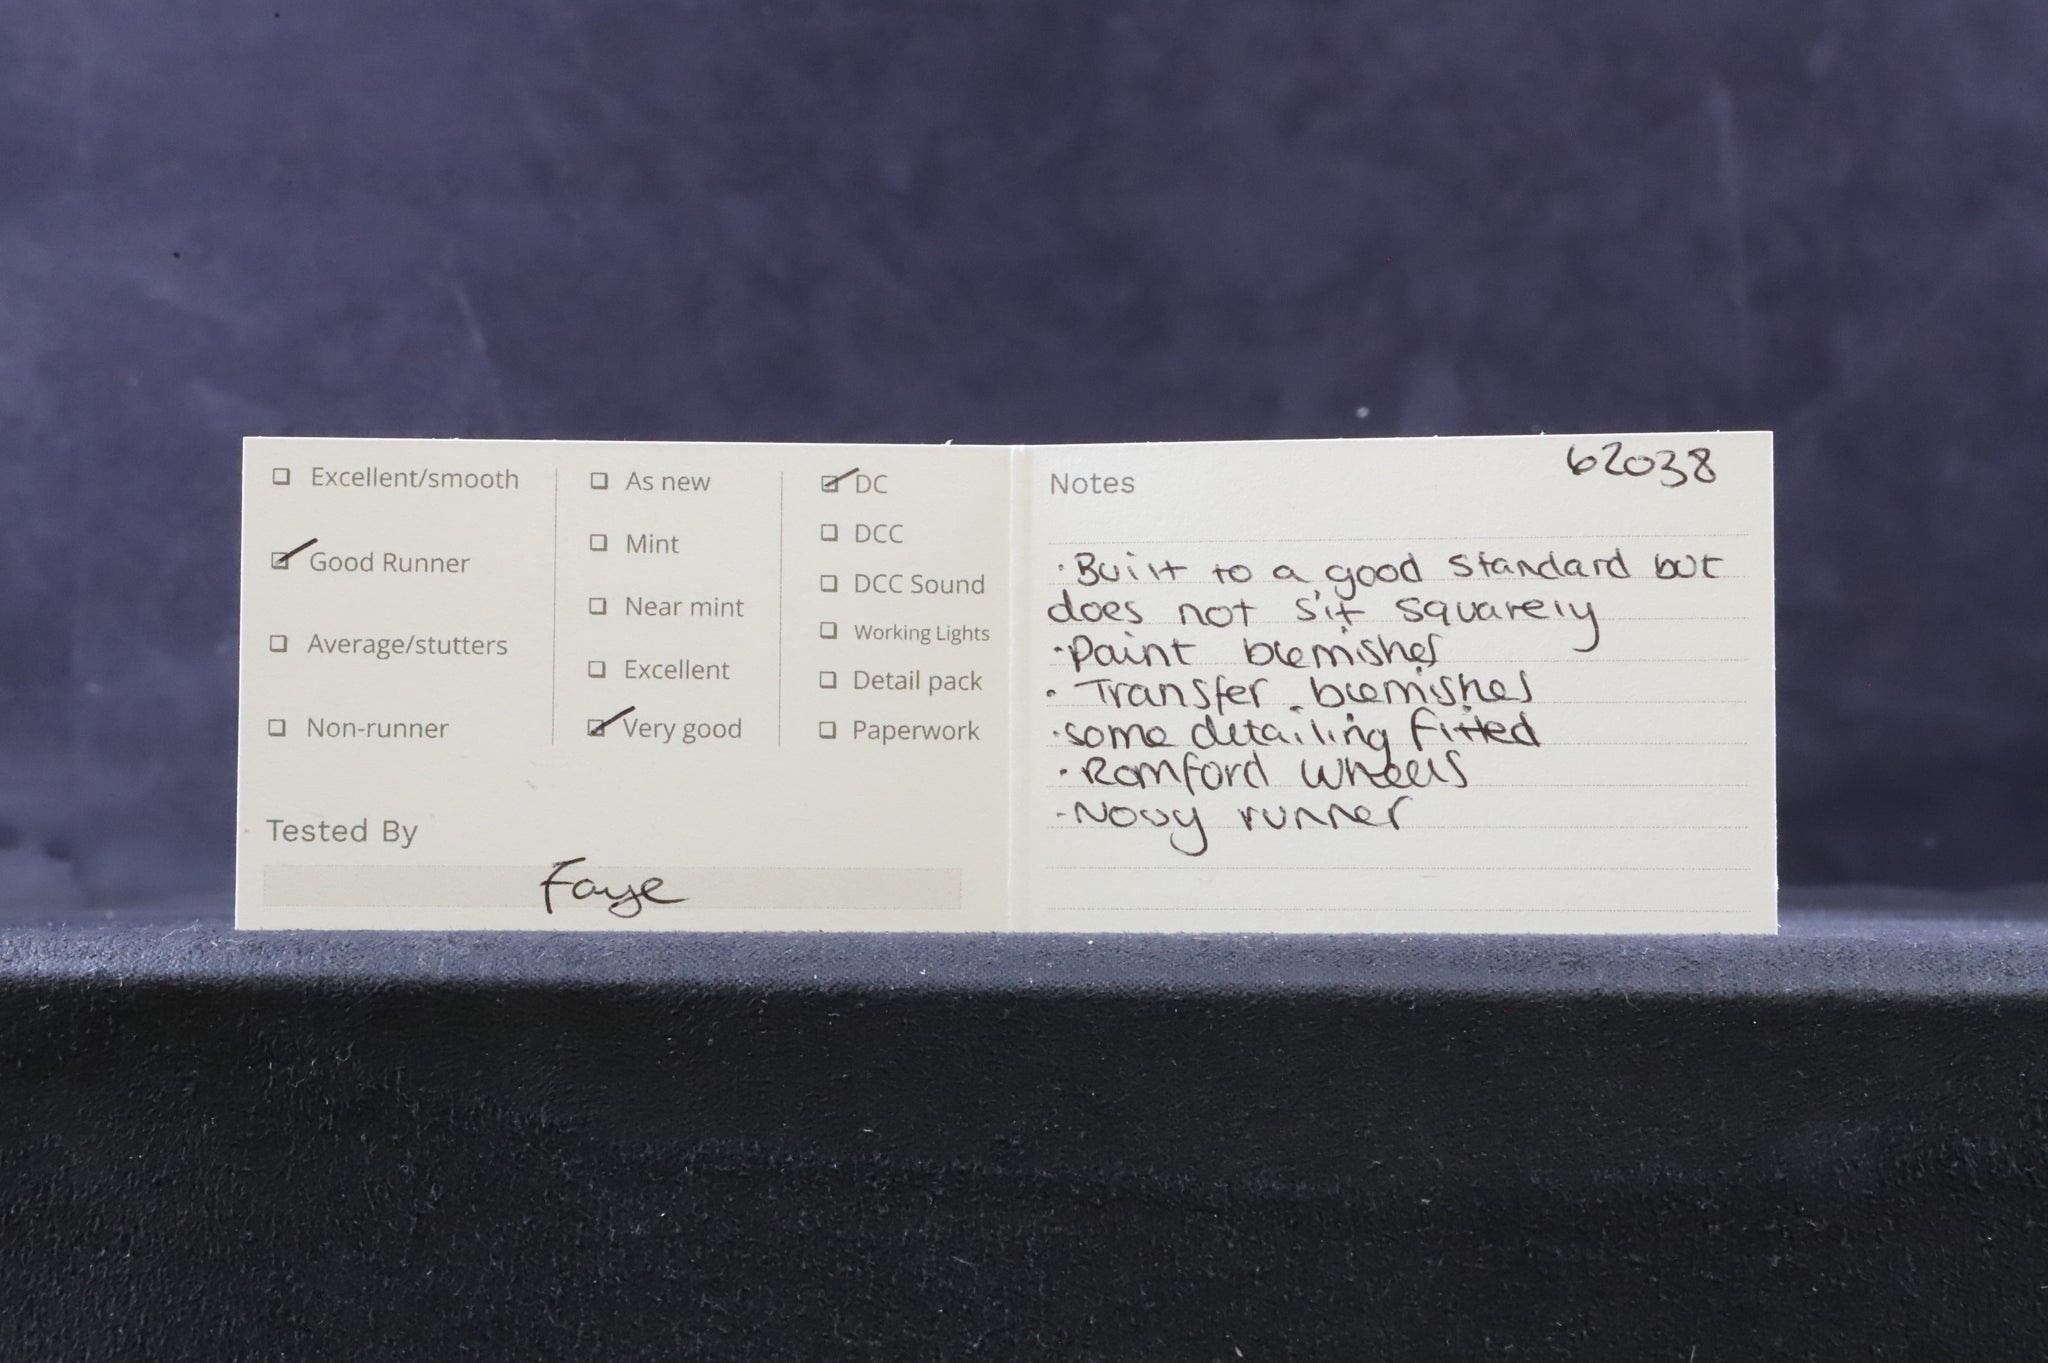 Excellent/smooth
Good Runner
Average/stutters
Non-runner
As new
Mint
Near mint
Excellent
Very good
DC
DCC
DCC Sound
Working Lights
Detail pack
Paperwork
Tested By
Faye
62038
Notes
· Built to a good standard but
does not sit squarely
· Paint blemishes
· Transfer blemishes
· some detailing fitted
· Romford wheels
- Noisy runner